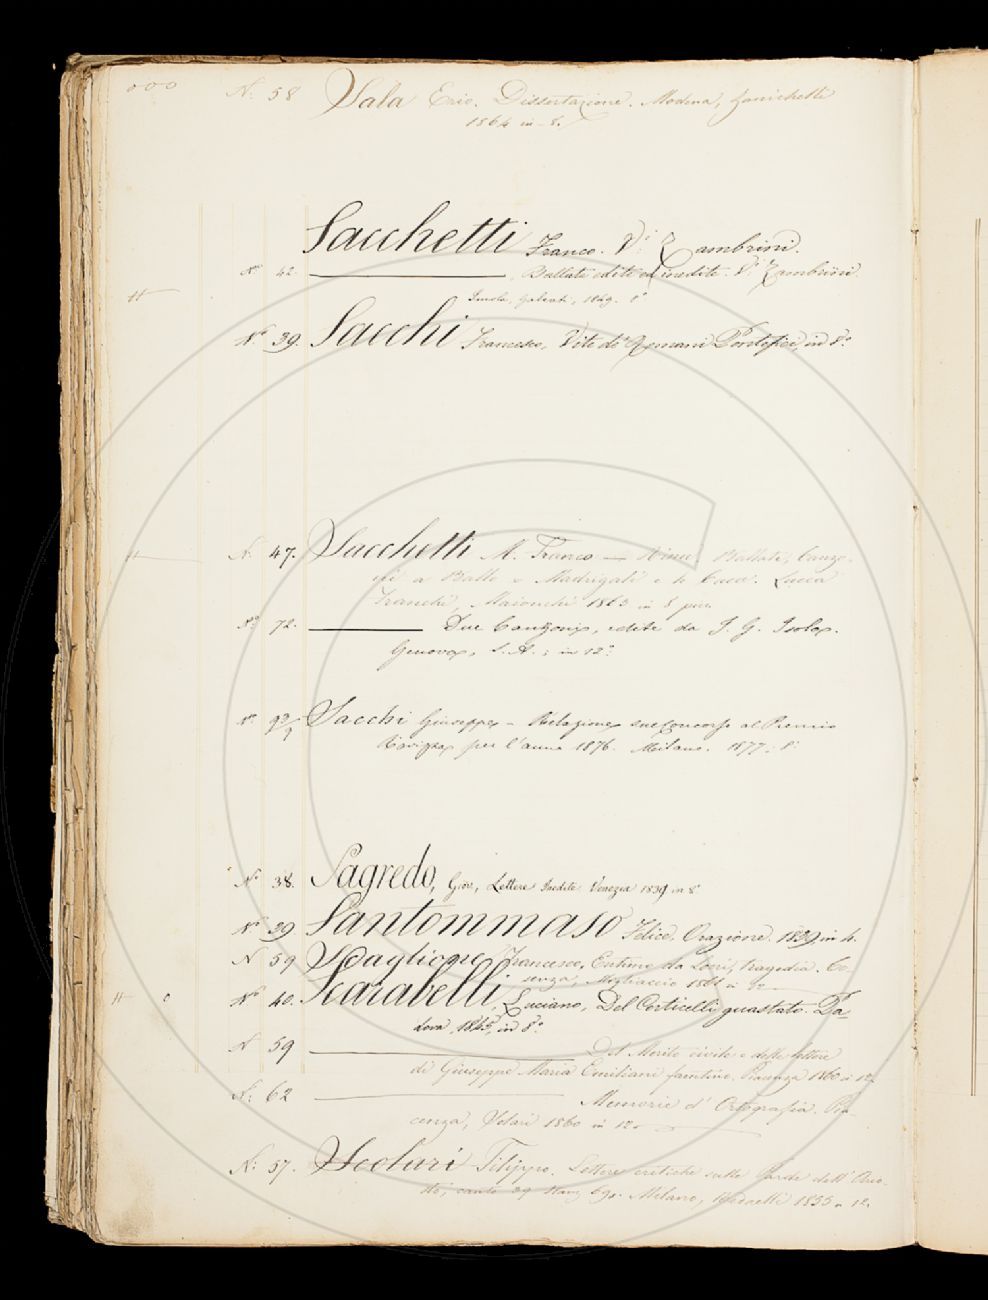 000 N. 58 Sala Eric. Dissertazione. Modena, Zanichelli
1864 in-8.
Sacchetti Franco. V.i Zambrini.
N.o 42. ——— Ballate edite ed inedite. V.i Zambrini.
Imola, Galeati, 1849. 8.o
N.o 39. Sacchi Francesco, Vite de' Romani Pontefici, in 8.o
N. 47. Sacchetti M. Franco — Ballate, Canzo-
ni a Ballo e Madrigali e la Lucca
Franchi, Maionchi 1853 in 8 picc.
N.o 72. ——— Due Canzoni, edite da I. G. Isola.
Genova, S. A.; in 12.o
N.o 93/9 Sacchi Giuseppe — Relazione sul Concorso al Premio
Ravizza per l'anno 1876. Milano. 1877; 8.o
N.o 38. Sagredo, Giov., Lettere Inedite Venezia 1839 in 8.o
N.o 39 Santommaso Felice, Orazione. 1839 in 4.
N. 59 Scaglione Francesco, Entimo da Locri, tragedia. Co-
senza, Migliaccio 1861 in
# o N.o 40. Scarabelli, Luciano, Del Corticelli guastato. Pa-
dova, 1845, in 8.o
N. 59 ——— Del Merito civile e delle lettere
di Giuseppe Maria Emiliani faentino. Piacenza 1860 in 12.
N: 62 ——— Memorie d' Ortografia. Pia-
cenza, Solari 1860 in 12.
N: 57. Scolari Filippo. Lettere critiche sulle Giunte dell' Ario-
sto, canto 29 stanz. Milano, 1855 in 12.